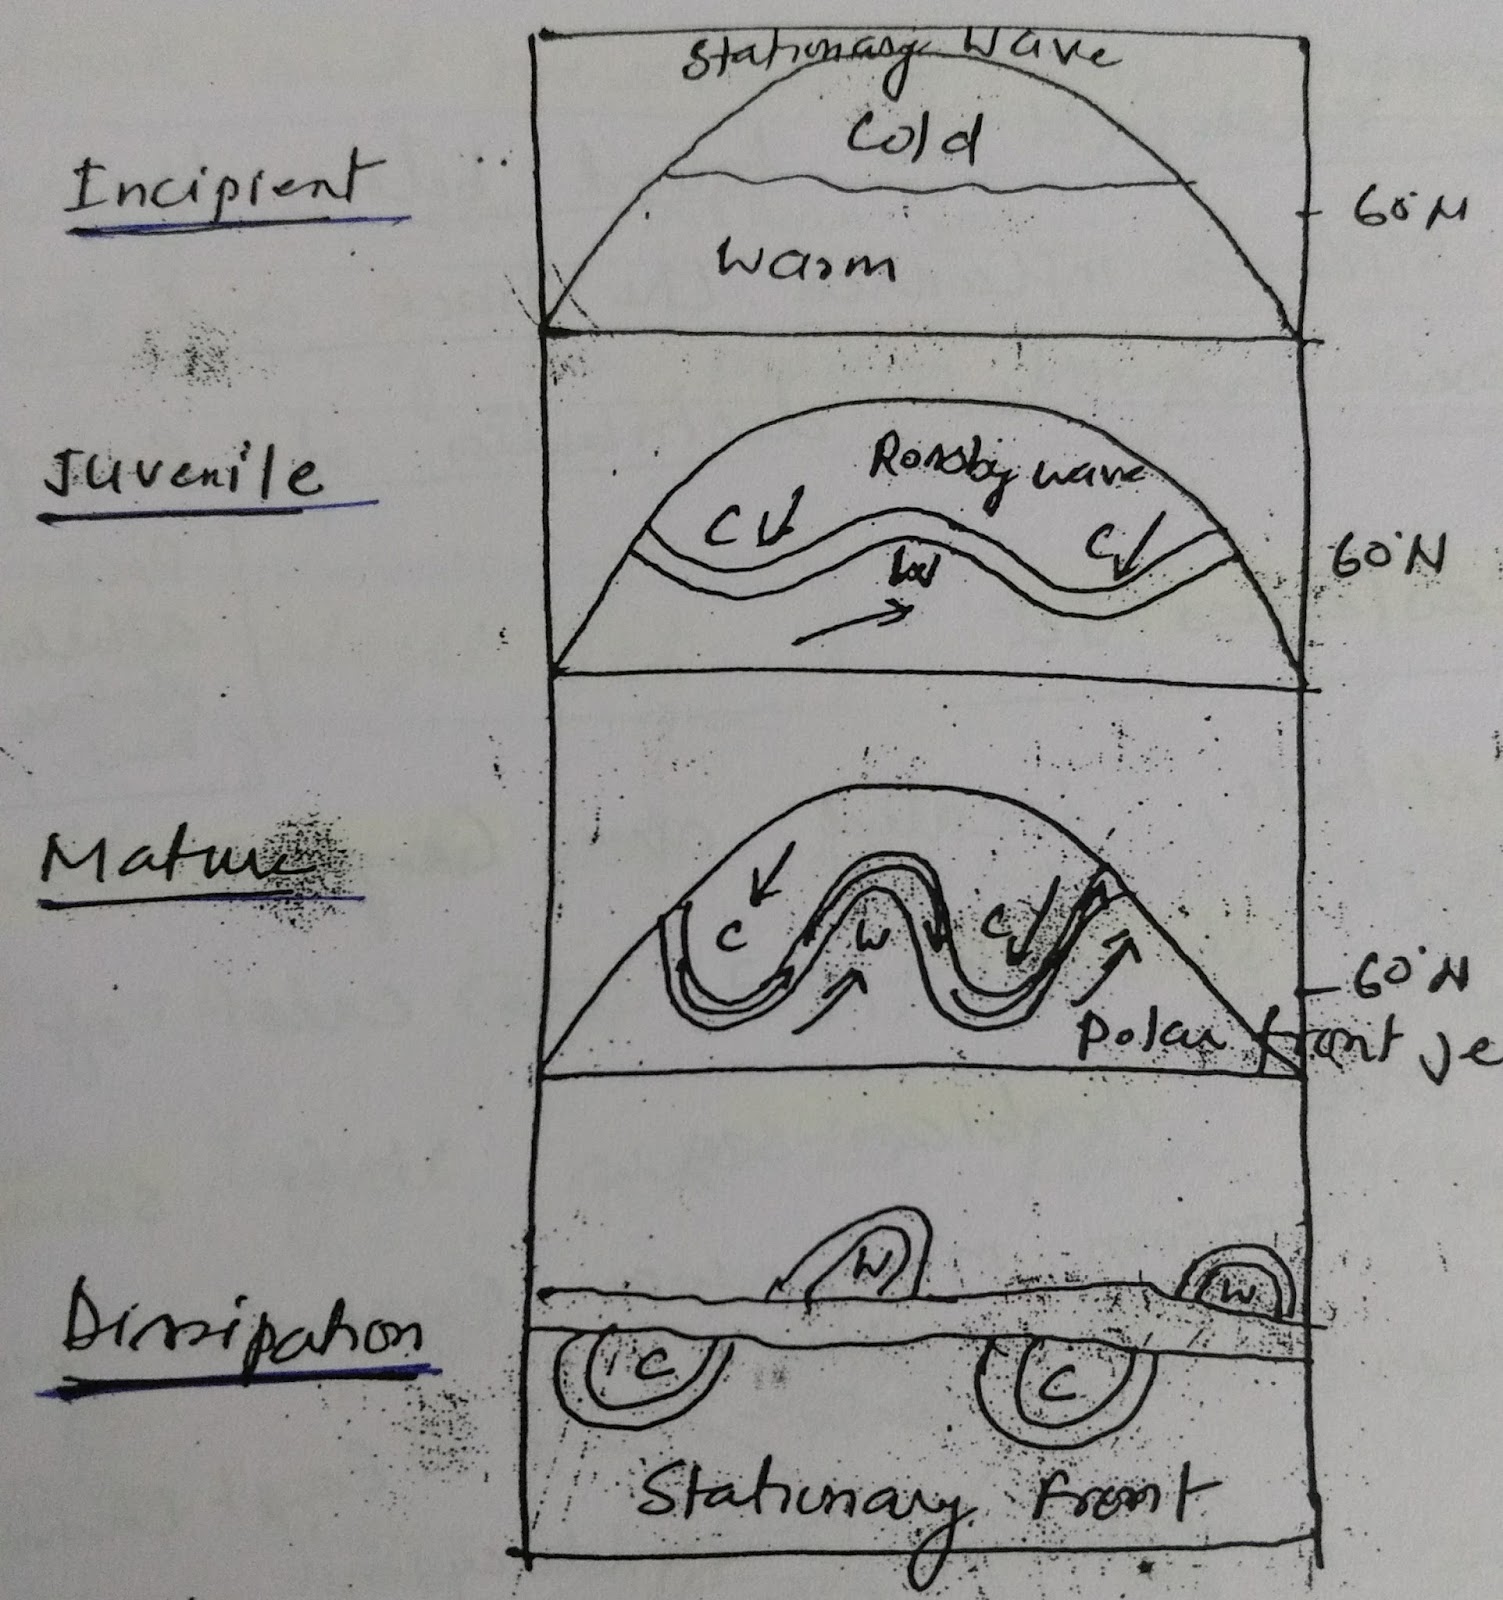 Stationary Wave
Cold
Incipient
60°N
Warm
Rossby wave
Juvenile
C
C
60°N
W
Mature
C
W
C
60°N
Polar front je
W
W
Dissipation
C
C
Stationary Front